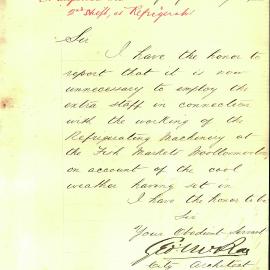 2nd Shift, at Refrigerator
Sir
I have the honor to
report that it is now
unnecessary to employ the
extra staff in connection
with the working of the
Refrigerating Machinery at
the Fish Markets Woolloomooloo
on account of the cool
weather having set in
I have the honor to be
Sir
Your Obedient Servant
City Architect